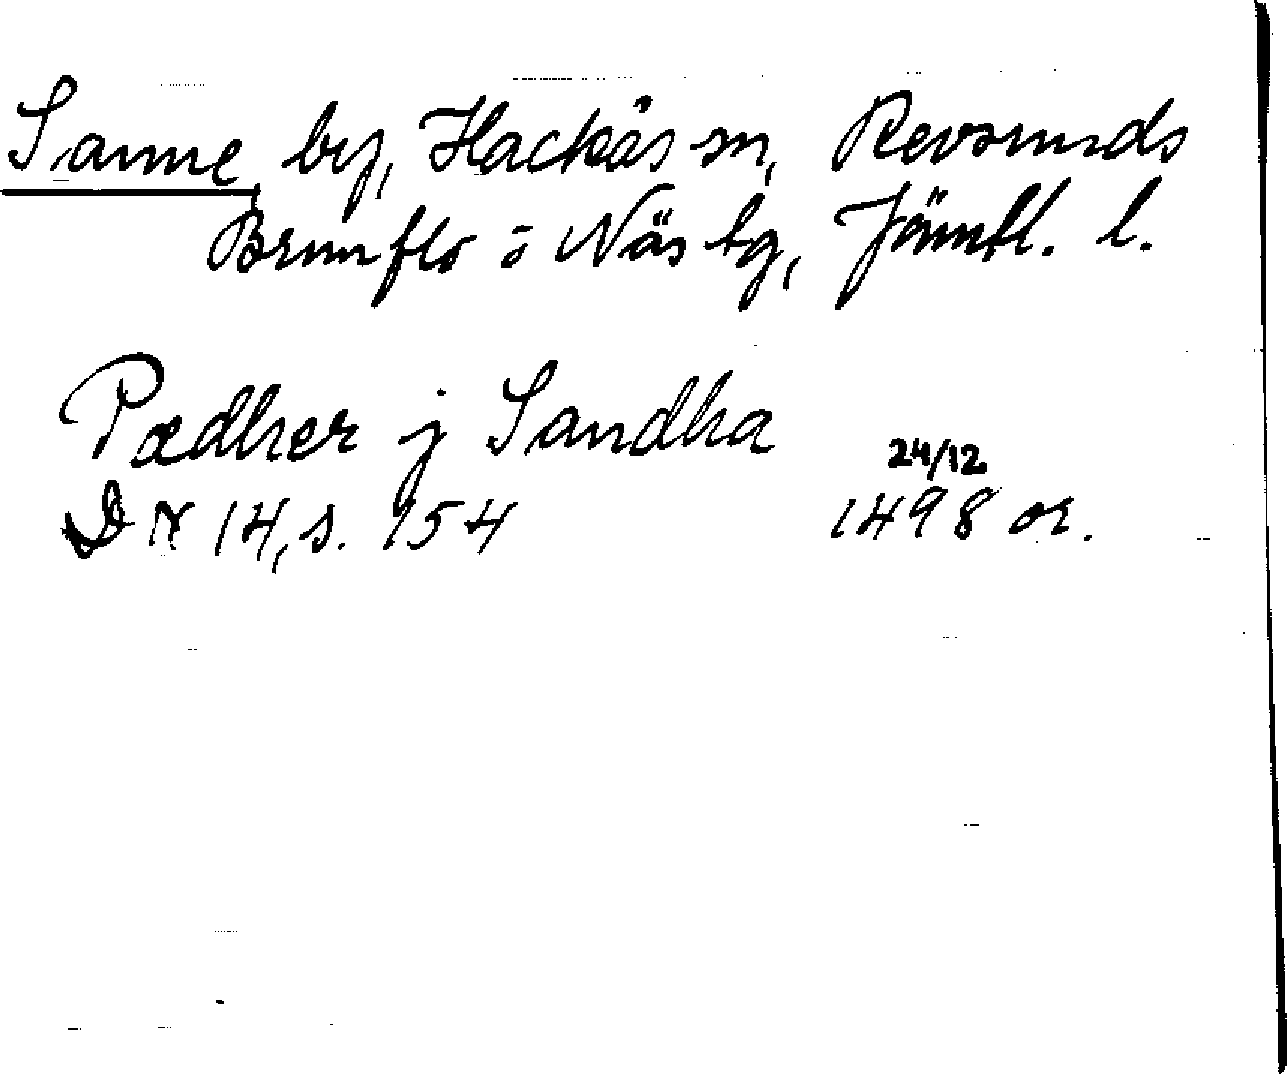 Sanne, by, Hackås sn, Revsunds
Brunflo o Näs tg, Jämtl. l.
Pædher j Sandha
24/12
DN 14, s. 154 1498 or.